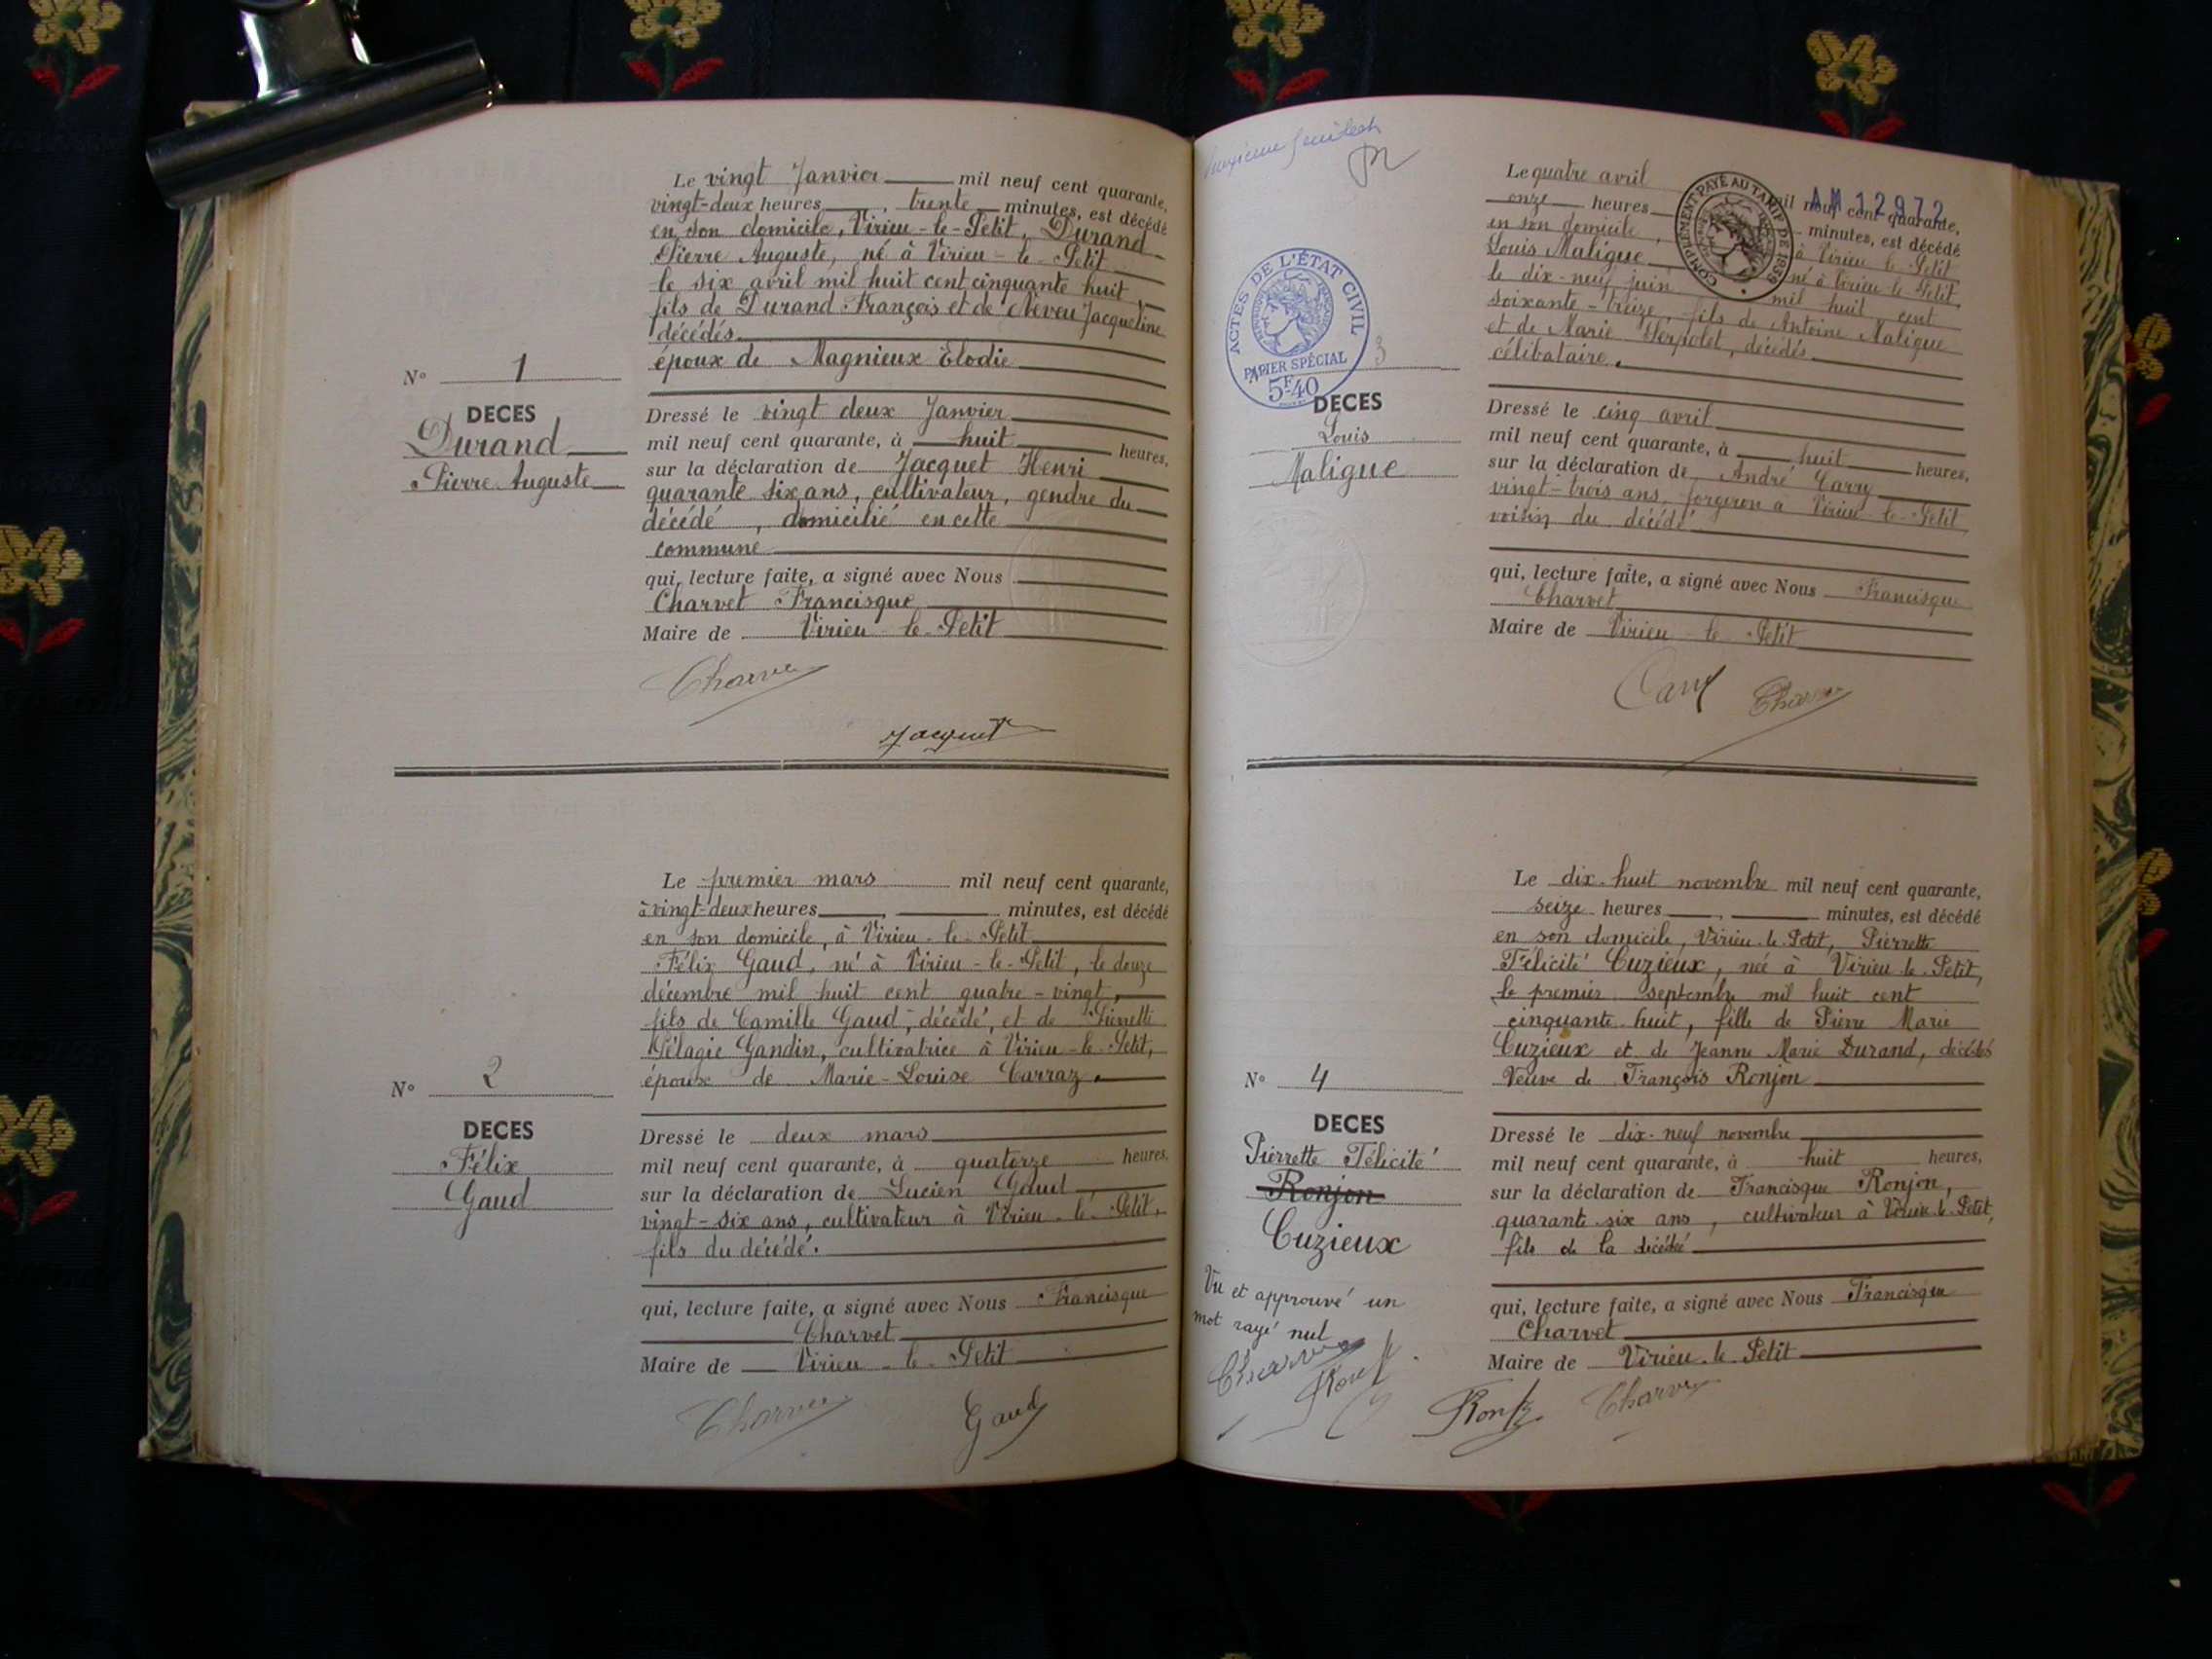 Le vingt Janvier mil neuf cent quarante,
vingt-deux heures, trente minutes, est décédé
en son domicile, Virieu-le-Petit, Durand
Pierre Auguste, né à Virieu-le-Petit
le six avril mil huit cent cinquante huit,
fils de Durand François et de Neveu Jacqueline
décédés
époux de Magnieux Elodie
N° 1
DECES
Durand
Pierre Auguste
Dressé le vingt deux Janvier
mil neuf cent quarante, à huit heures,
sur la déclaration de Jacquet Henri
quarante six ans, cultivateur, gendre du
décédé, domicilié en cette
commune
qui, lecture faite, a signé avec Nous
Charvet Francisque
Maire de Virieu-le-Petit
Charvet
Jacquet
Le premier mars mil neuf cent quarante,
à vingt-deux heures, minutes, est décédé
en son domicile, à Virieu-le-Petit
Félix Gaud, né à Virieu-le-Petit, le douze
décembre mil huit cent quatre-vingt,
fils de Camille Gaud, décédé, et de Pierrette
Pélagie Gandin, cultivatrice à Virieu-le-Petit,
époux de Marie-Louise Carraz.
N° 2
DECES
Félix
Gaud
Dressé le deux mars
mil neuf cent quarante, à quatorze heures,
sur la déclaration de Lucien Gaud
vingt-six ans, cultivateur à Virieu-le-Petit,
fils du décédé.
qui, lecture faite, a signé avec Nous Francisque
Charvet
Maire de Virieu-le-Petit
Charvet
Gaud
ACTES DE L'ÉTAT CIVIL
PAPIER SPÉCIAL
5F40
COMPLÉMENT PAYÉ AU TARIF DE 1939
AM 12972
Le quatre avril mil neuf cent quarante,
onze heures minutes, est décédé
en son domicile, à Virieu le Petit
Louis Maligue né à Virieu-le-Petit,
le dix-neuf juin mil huit cent
soixante-treize, fils de Antoine Maligue
et de Marie Serpolet, décédés
célibataire.
3
DECES
Louis
Maligue
Dressé le cinq avril
mil neuf cent quarante, à huit heures,
sur la déclaration de André Carry
vingt-trois ans, forgeron à Virieu-le-Petit,
voisin du décédé
qui, lecture faite, a signé avec Nous Francisque
Charvet
Maire de Virieu-le-Petit
Charvet
Le dix-huit novembre mil neuf cent quarante,
seize heures, minutes, est décédé
en son domicile, Virieu-le-Petit, Pierrette
Félicité Cuzieux, née à Virieu-le-Petit,
le premier septembre mil huit cent
cinquante-huit, fille de Pierre Marie
Cuzieux et de Jeanne Marie Durand, décédés
Veuve de François Ronjon
N° 4
DECES
Pierrette Félicité
Ronjon
Cuzieux
Vu et approuvé un
mot rayé nul
Charvet
Dressé le dix-neuf novembre
mil neuf cent quarante, à huit heures,
sur la déclaration de Francisque Ronjon,
quarante six ans, cultivateur à Virieu-le-Petit,
fils de la décédée
qui, lecture faite, a signé avec Nous Francisque
Charvet
Maire de Virieu-le-Petit
Charvet